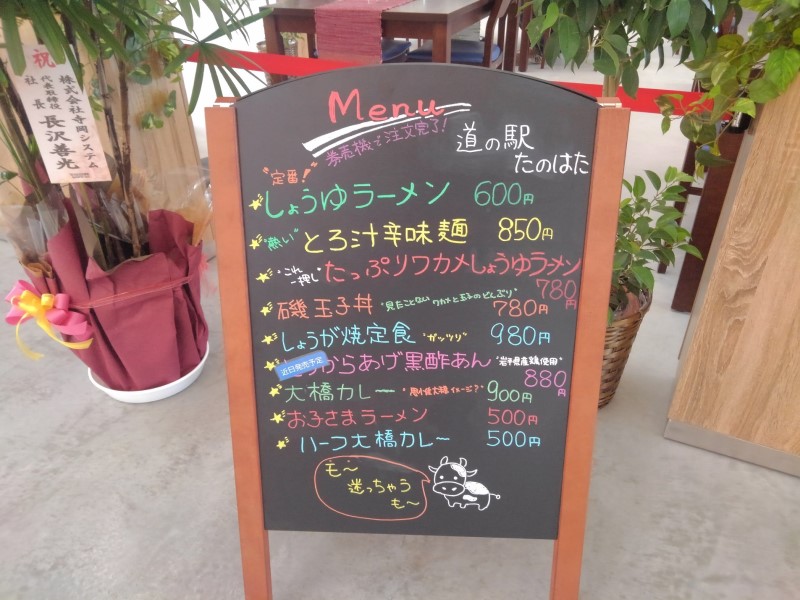 祝
株式会社寺岡システム
代表取締役
社長 長沢善光
Menu
券売機で注文完了!
道の駅
たのはた
"定番!"
しょうゆラーメン 600円
"熱い" とろ汁辛味麺 850円
"これ一押し" たっぷりワカメしょうゆラーメン
780円
磯玉子丼 "見たことない ワカメと玉子のどんぶり" 780円
しょうが焼定食 "ガッツリ" 980円
近日発売予定
からあげ黒酢あん "岩手県産鶏使用"
880円
大橋カレー 900円
お子さまラーメン 500円
ハーフ大橋カレー 500円
モ〜
迷っちゃう
も〜